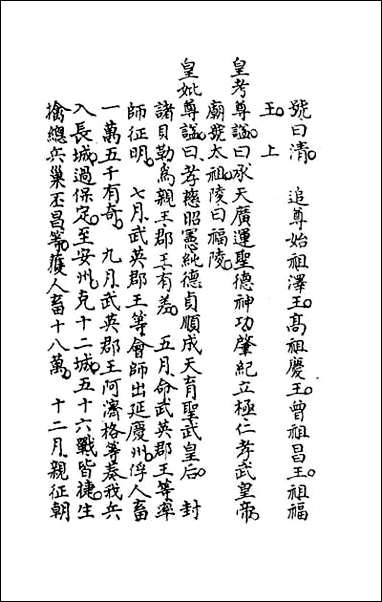 號曰清。　追尊始祖澤王。高祖慶王。曾祖昌王。祖福
王。上
皇考尊謚曰承天廣運聖德神功肇紀立極仁孝武皇帝。
廟號太祖。陵曰福陵。
皇妣尊謚曰。孝慈昭憲純德貞順成天育聖武皇后。　封
諸貝勒爲親王郡王有差。　五月。命武英郡王等率
師征明。　七月。武英郡王等會師出延慶州。俘人畜
一萬五千有奇。　九月。武英郡王阿濟格等奏。我兵
入長城。過保定。至安州。克十二城。五十六戰皆捷。生
擒總兵巢丕昌等。獲人畜十八萬。　十二月。親征朝